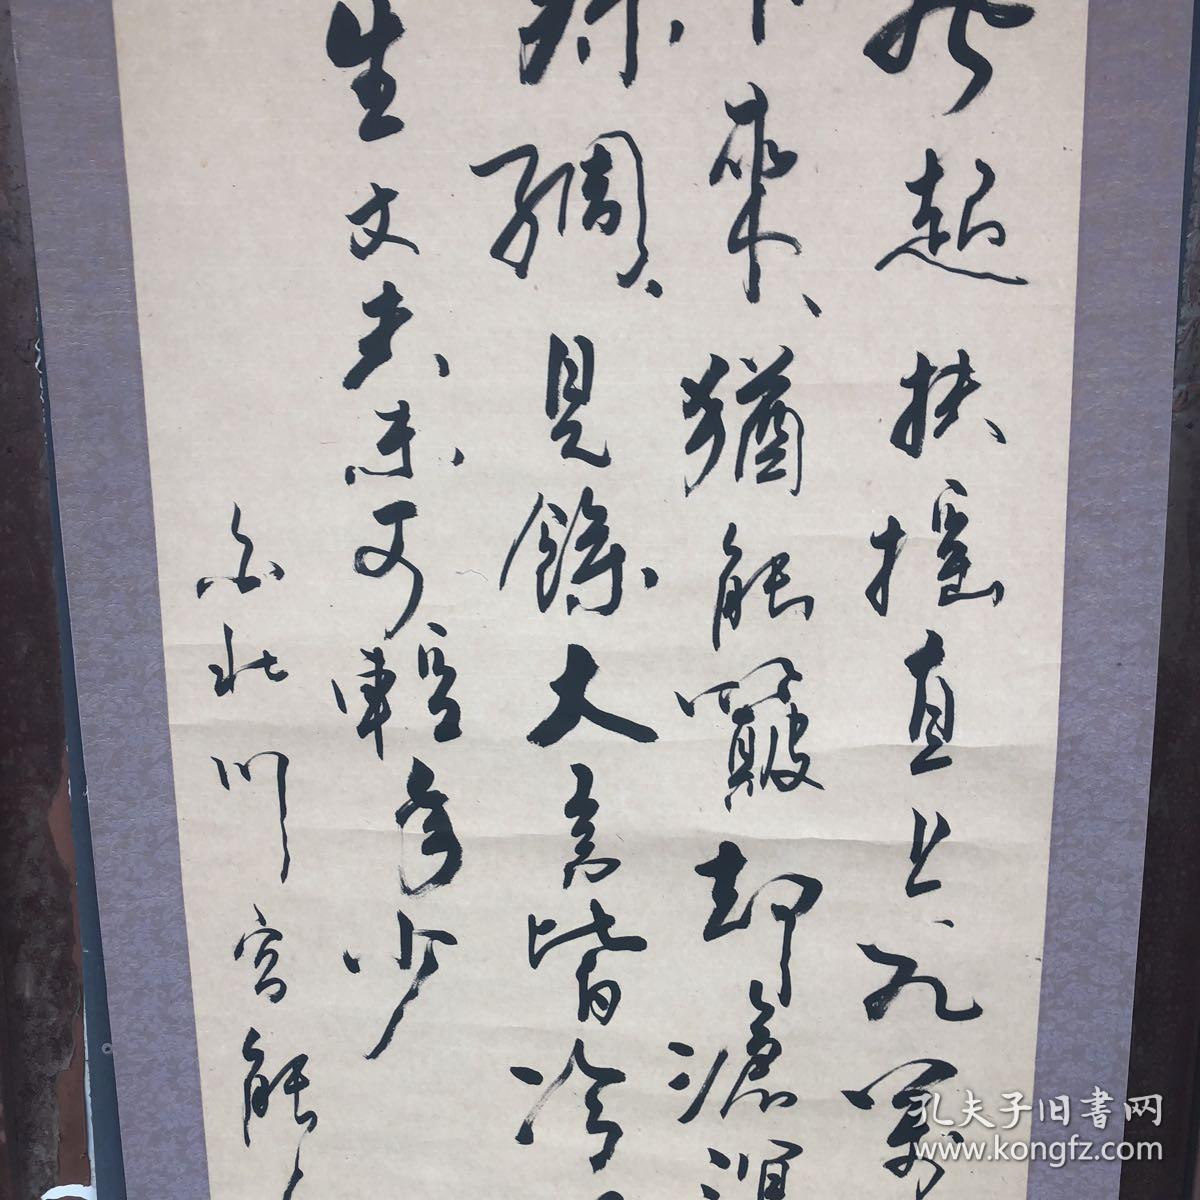 風起扶摇直上九萬
下來猶能簸却滄溟
殊調見餘大言皆冷
生丈夫未可輕年少
北川宮能
孔夫子旧書网
www.kongfz.com